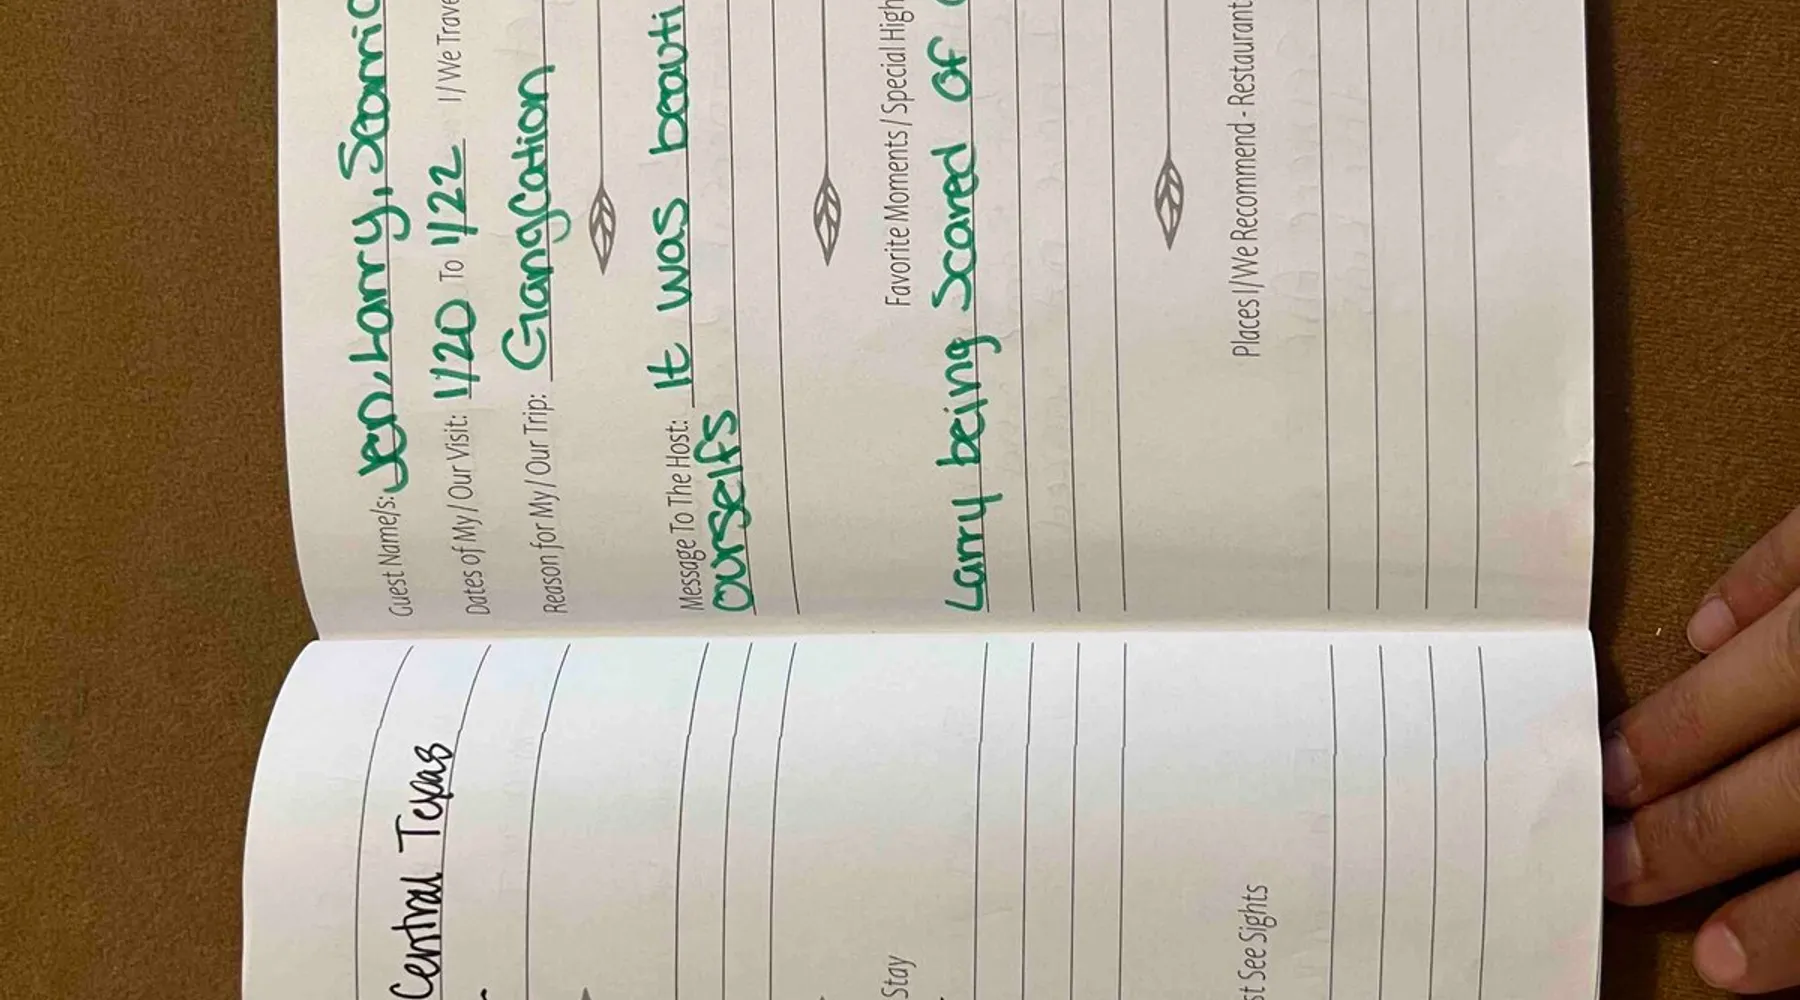 Guest Name/s: Jen, Larry,
Dates of My / Our Visit: 1/20 To 1/22 I / We
Reason for My / Our Trip: Gangcation
Message To The Host: It was
ourselfs
Favorite Moments / Special
Larry being scared of
Places I/We Recommend - Restaurant
Central Texas
Stay
See Sights